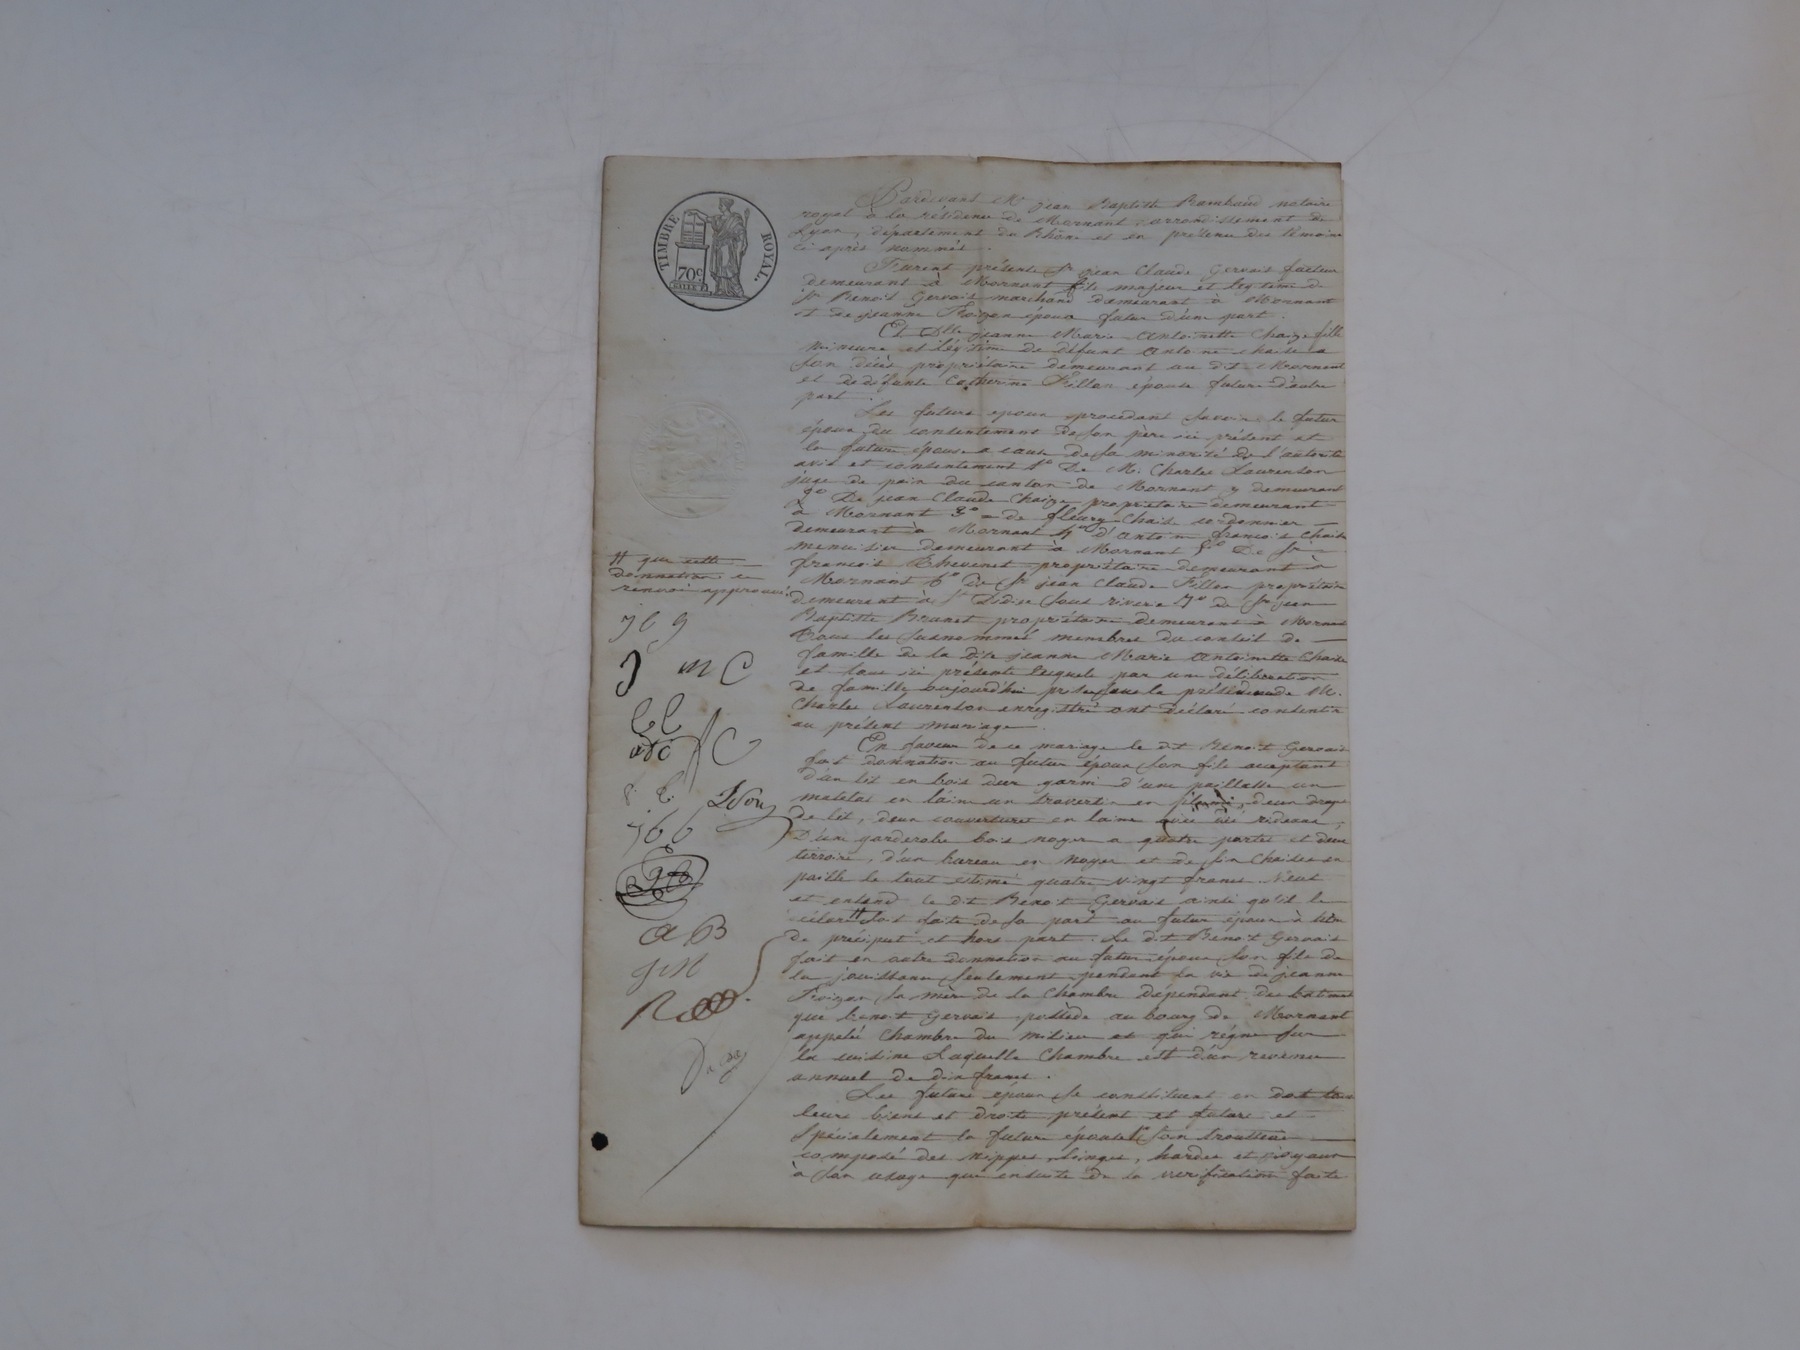 TIMBRE ROYAL.
70c
Pardevant Me jean Baptiste Rambaud notaire
royal à la résidence de Mornant, arrondissement de
Lyon, département du Rhône et en présence des témoins
ci après nommés.
Furent présents Sr jean Claude Gervais
demeurant à Mornant fils majeur et légitime de
Sr Benoit Gervais marchand demeurant à Mornant
et de jeanne Froizon époux futur d'une part.
Et Dlle jeanne Marie Antoinette Chaize fille
mineure et légitime de défunt Antoine chaize a
son décès propriétaire demeurant au dit Mornant
et de défunte Catherine Fillon épouse future d'autre
part.
Les futurs époux procédant savoir le futur
époux du consentement de son père ici présent et
la future épouse a cause de sa minorité de l'autorité
avis et consentement 1o De M. Charles Laurenson
juge de paix du canton de Mornant y demeurant
2o De jean Claude Chaize propriétaire demeurant
à Mornant 3o de fleury Chaize cordonnier
demeurant à Mornant 4o d'Antoine francois Chaize
menuisier demeurant à Mornant 5o De Sr
francois Thevenet propriétaire demeurant à
Mornant 6o De Sr jean Claude Fillon propriétaire
demeurant à St Didier sous riverie 7o de Sr jean
Baptiste Brunet propriétaire demeurant à Mornant
Tous les susnommés membres du conseil de
famille de la dite jeanne Marie Antoinette Chaize
et tous ici présents lesquels par une délibération
de famille aujourd'hui prise sous la présidence de M.
Charles Laurenson enregistré ont déclaré consentir
au présent mariage.
En faveur de ce mariage le dit Benoit Gervais
fait donnation au futur époux son fils acceptant
d'un lit en bois dur garni d'une paillasse un
matelas en laine un traversin en plumes, deux draps
de lit, deux couvertures en laine avec des rideaux,
D'une garderobe bois noyer a quatre portes et deux
tirroirs, d'un bureau en noyer et de six chaises en
paille le tout estimé quatre vingt francs. Veut
et entend le dit Benoit Gervais ainsi qu'il le
déclare # soit faite de sa part au futur époux à titre
de préciput et hors part. Le dit Benoit Gervais
fait en outre donnation au futur époux son fils de
la jouissance seulement pendant la vie de jeanne
Froizon sa mère de la chambre dépendant des batiments
que benoit Gervais possède au bourg de Mornant
appelé Chambre du milieu et qui règne sur
la cuisine Laquelle Chambre est d'un revenu
annuel de dix francs.
Les futurs époux se constituent en dot tous
leurs biens et droits présent et futurs et
spécialement la future épouse 1o son trousseau
composé des nippes, linges, hardes et joyaux
à son usage que ensuite de la vérification faite
# que cette
donnation
renvoi approuvé.
J C g
J m C
C L
afc
f C
f t
J C f
J B B
a B